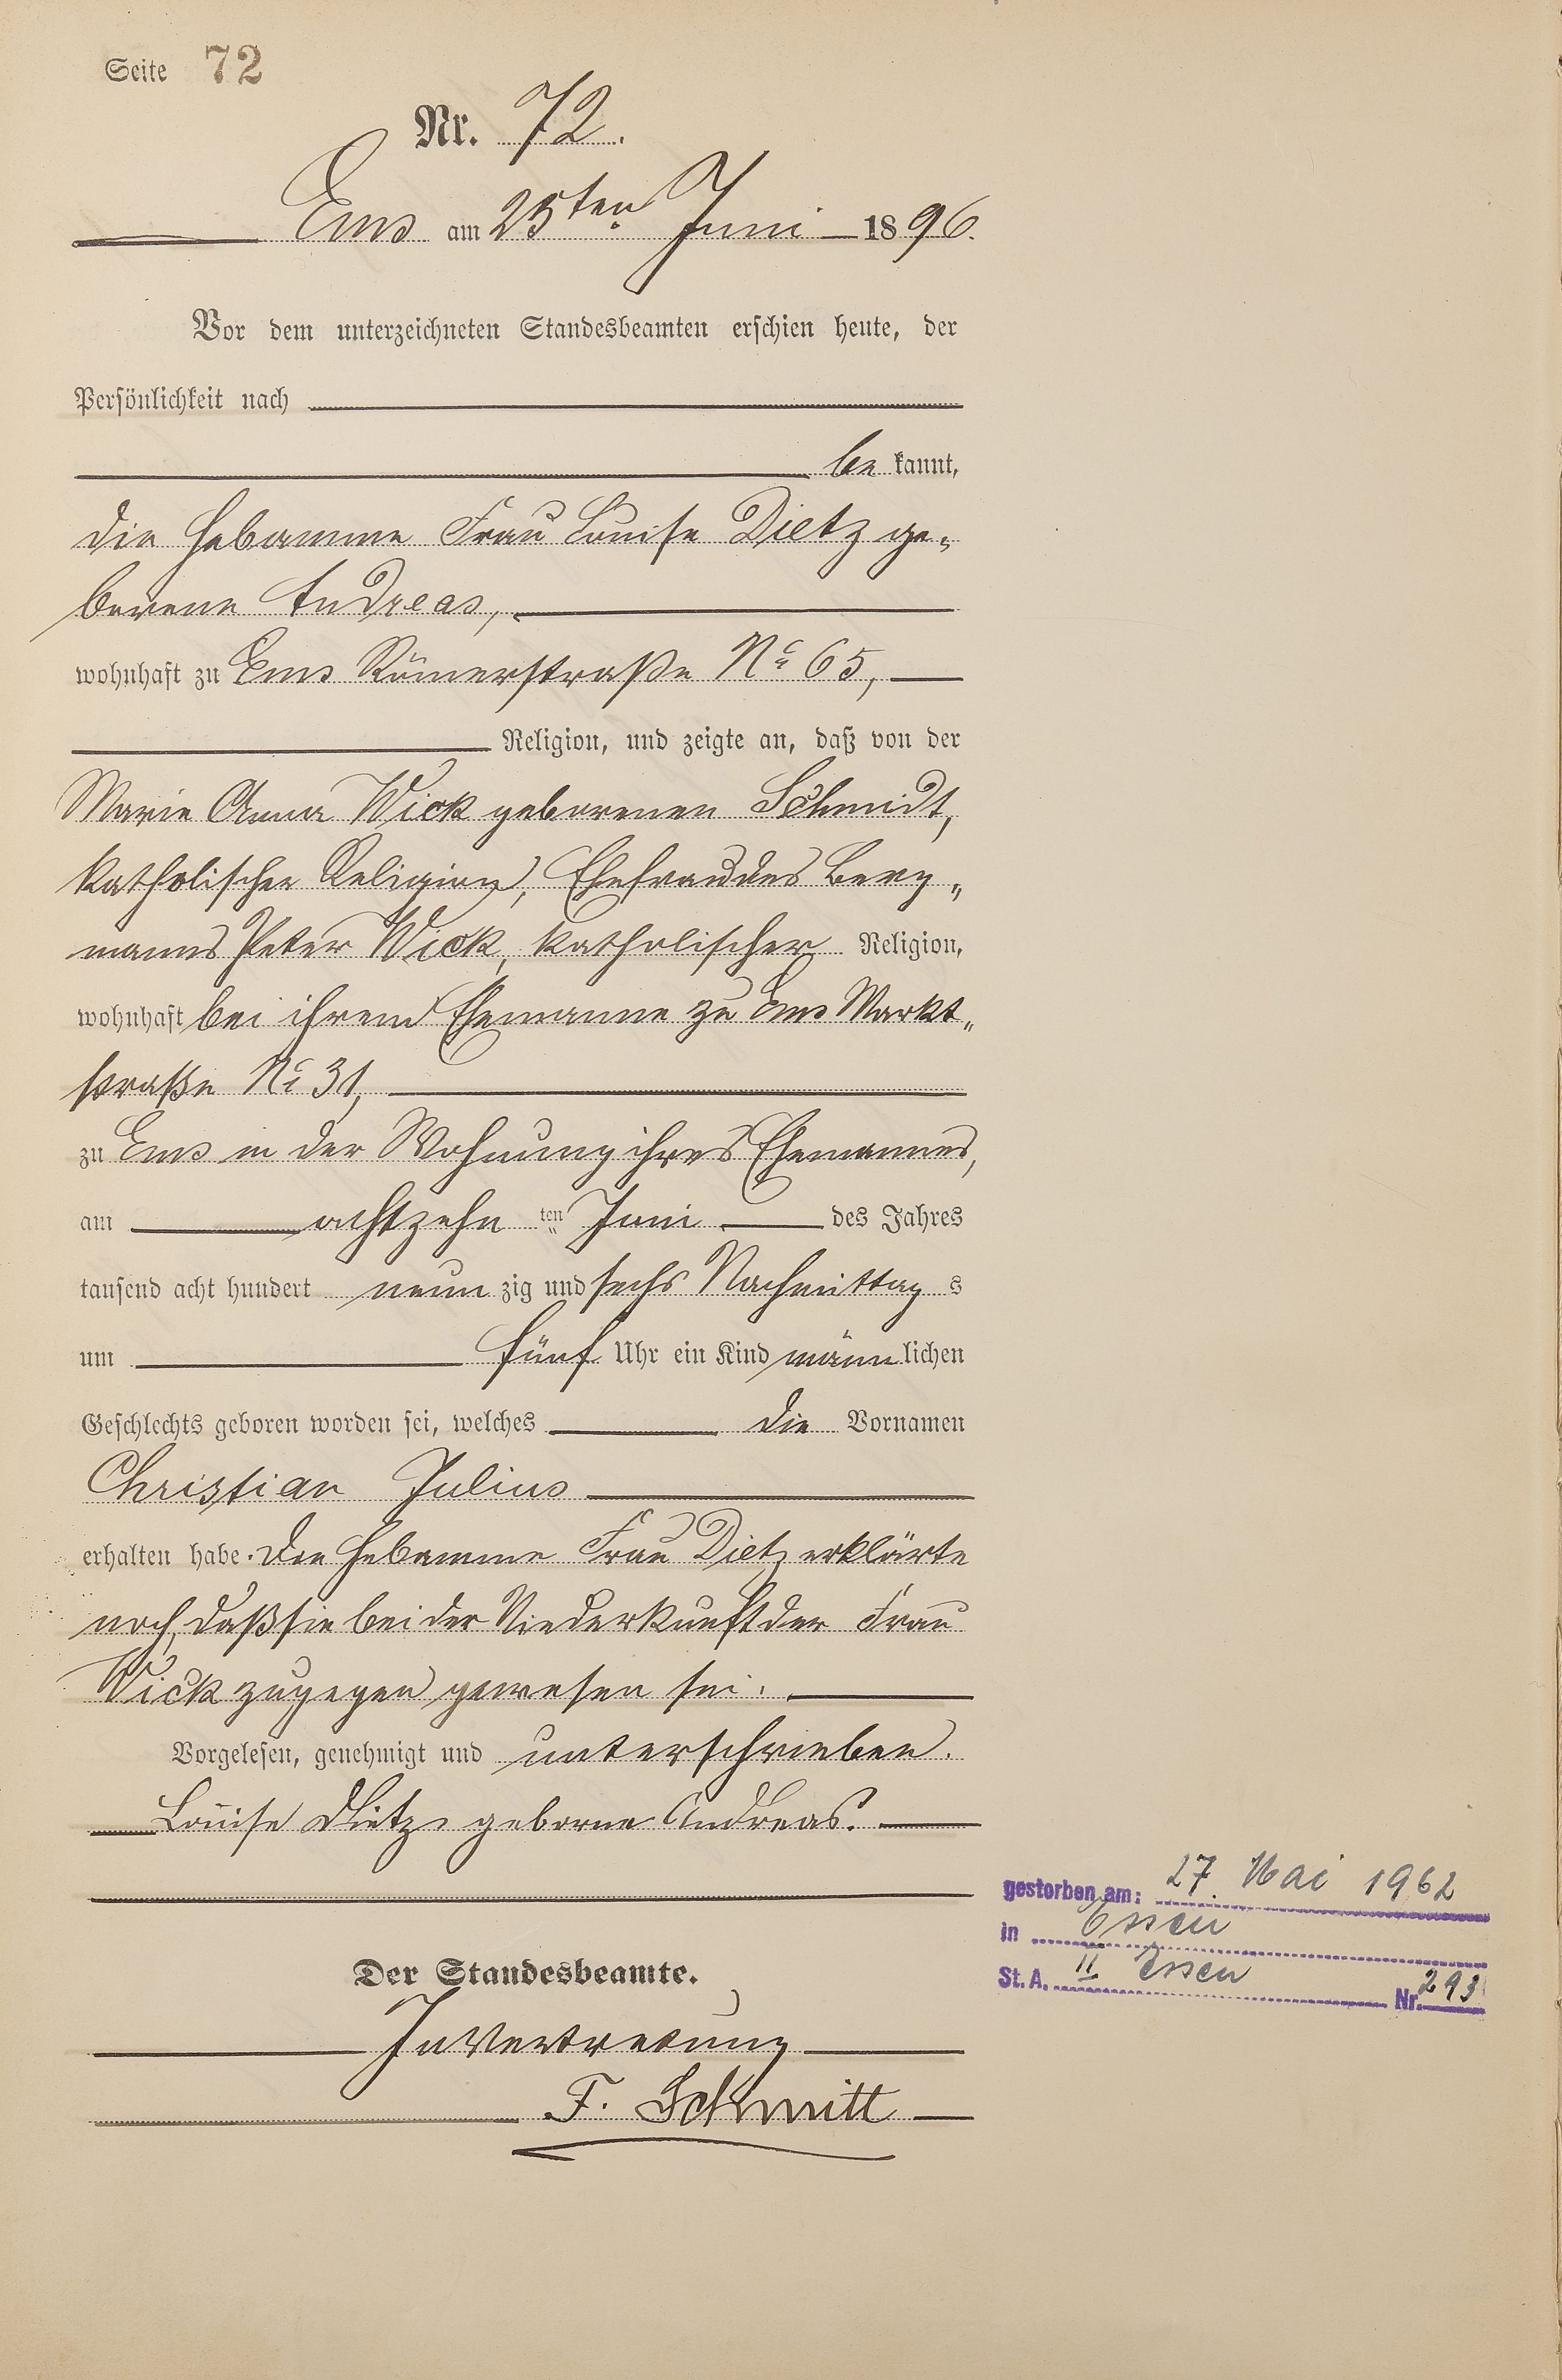 Seite 72
Nr. 72.
Ems am 25ten Juni 1896.
Vor dem unterzeichneten Standesbeamten erschien heute, der
Persönlichkeit nach
be kannt,
die Hebamme Frau Louise Dietz ge-
borene Andreas,
wohnhaft zu Ems Römerstraße No 65,
Religion, und zeigte an, daß von der
Marie Anna Wick geborenen Schmidt,
katholischer Religion, Ehefrau des Berg-
manns Peter Wick, katholischer Religion,
wohnhaft bei ihrem Ehemanne zu Ems Markt-
straße No 31,
zu Ems in der Wohnung ihres Ehemannes,
am achtzehn ten Juni des Jahres
tausend acht hundert neun zig und sechs Nachmittag s
um fünf Uhr ein Kind männ lichen
Geschlechts geboren worden sei, welches die Vornamen
Christian Julius
erhalten habe. Die Hebamme Frau Dietz erklärte
noch, daß sie bei der Niederkunft der Frau
Wick zugegen gewesen sei.
Vorgelesen, genehmigt und unterschrieben.
Louise Dietz geborne Andreas.
Der Standesbeamte.
In Vertretung
F. Schmitt
gestorben am: 27. Mai 1962
in Essen
St. A. II Essen Nr. 293